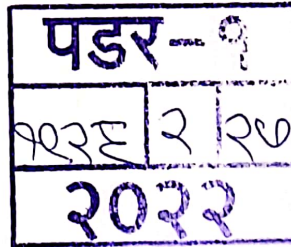 पडर--१
१९२६ २ २७
२०२२